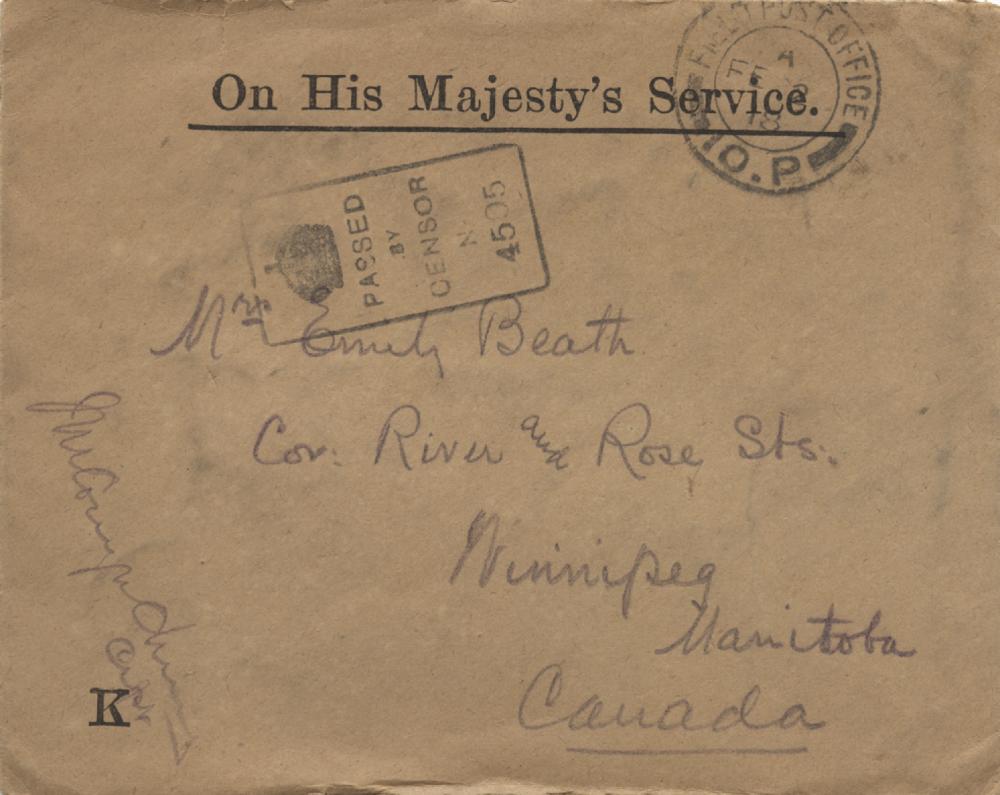 On His Majesty's Service.
FIELD POST OFFICE
A
FE 8
18
O.P
PASSED
BY
CENSOR
No
4505
Mrs Emily Beath
Cor: River and Rose Sts.
Winnipeg
Manitoba
Canada
K